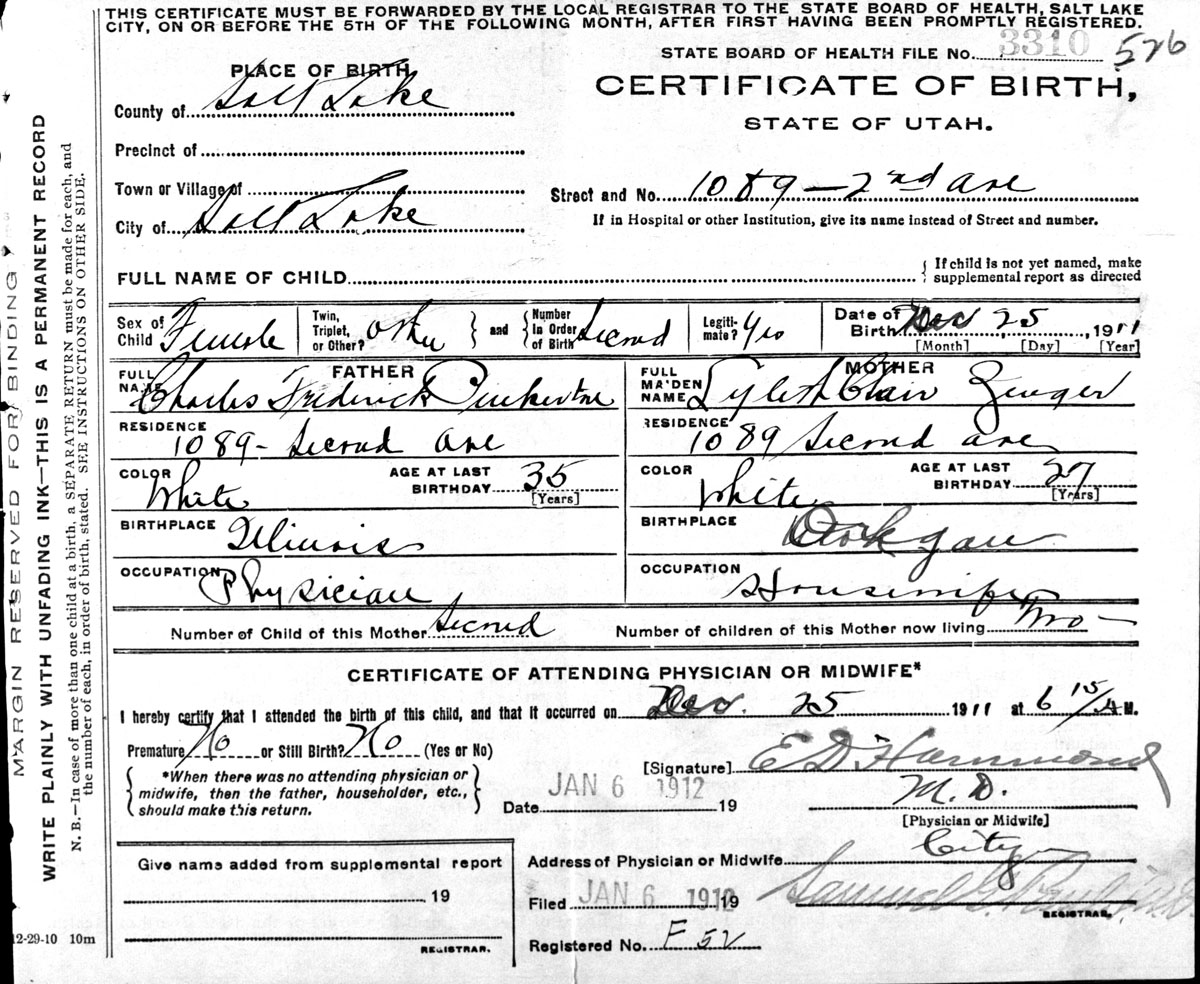 THIS CERTIFICATE MUST BE FORWARDED BY THE LOCAL REGISTRAR TO THE STATE BOARD OF HEALTH, SALT LAKE
CITY, ON OR BEFORE THE 5TH OF THE FOLLOWING MONTH, AFTER FIRST HAVING BEEN PROMPTLY REGISTERED.
STATE BOARD OF HEALTH FILE No. 3310 526
PLACE OF BIRTH
CERTIFICATE OF BIRTH,
County of Salt Lake
STATE OF UTAH.
Precinct of
Town or Village of
Street and No. 1089 - 2nd Ave
City of Salt Lake
If in Hospital or other Institution, give its name instead of Street and number.
FULL NAME OF CHILD
{ If child is not yet named, make
supplemental report as directed
Sex of Child Female
Twin, Triplet, or Other? other } and { Number In Order of Birth Second
Legiti-mate? Yes
Date of Birth Dec 25, 1911
[Month] [Day] [Year]
FATHER
FULL NAME Charles Frederick Pinkerton
MOTHER
FULL MA'DEN NAME
RESIDENCE 1089 - Second Ave
RESIDENCE 1089 Second ave
COLOR White AGE AT LAST BIRTHDAY 35 [Years]
COLOR White AGE AT LAST BIRTHDAY 27 [Years]
BIRTHPLACE Illinois
BIRTHPLACE
OCCUPATION Physician
OCCUPATION Housewife
Number of Child of this Mother Second
Number of children of this Mother now living Two -
CERTIFICATE OF ATTENDING PHYSICIAN OR MIDWIFE*
I hereby certify that I attended the birth of this child, and that it occurred on Dec. 25 1911 at 6 15/ A M.
Premature No or Still Birth? No (Yes or No)
{ *When there was no attending physician or
midwife, then the father, householder, etc.,
should make this return. }
[Signature] E D Hammond
M. D.
Date JAN 6 1912 19
[Physician or Midwife]
Address of Physician or Midwife City
Give name added from supplemental report
19
Filed JAN 6 1912 19
Samuel G. Paul, M.D.
REGISTRAR.
REGISTRAR.
Registered No. F 52
12-29-10 10m
MARGIN RESERVED FOR BINDING
WRITE PLAINLY WITH UNFADING INK—THIS IS A PERMANENT RECORD
N. B.—In case of more than one child at a birth, a SEPARATE RETURN must be made for each, and
the number of each, in order of birth, stated. SEE INSTRUCTIONS ON OTHER SIDE.